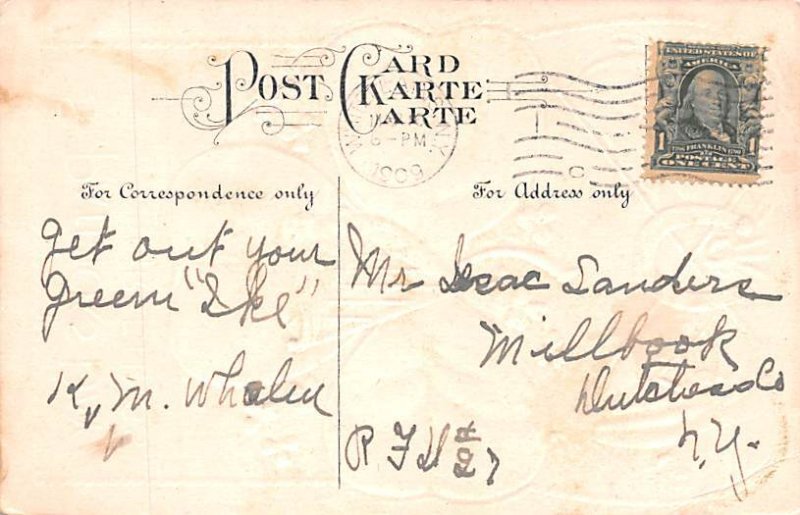 POST CARD
KARTE
CARTE
N.Y.
6-PM
1909
UNITED STATES OF
AMERICA
1 1
FRANKLIN
POSTAGE
ONE CENT
For Correspondence only
For Address only
get out your
green "Ike"
K, M. Whalen
Mr Isaac Sanders
Millbrook
Dutchess Co
N.Y.
R F D